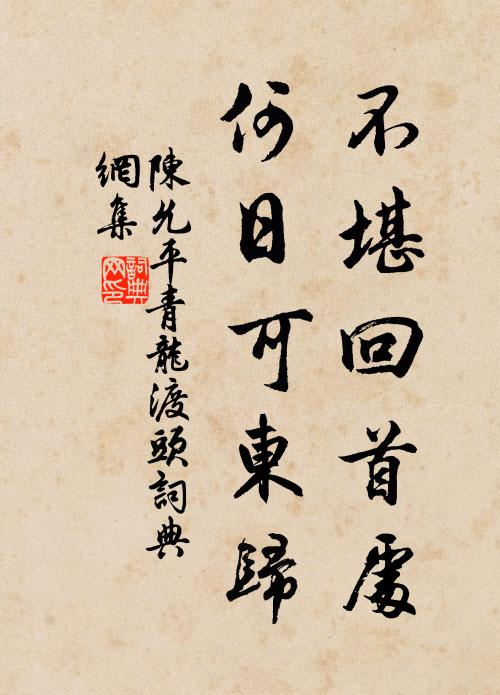 不堪回首處
何日可東歸
陳允平青龍渡頭詞典
網集
詞典網印